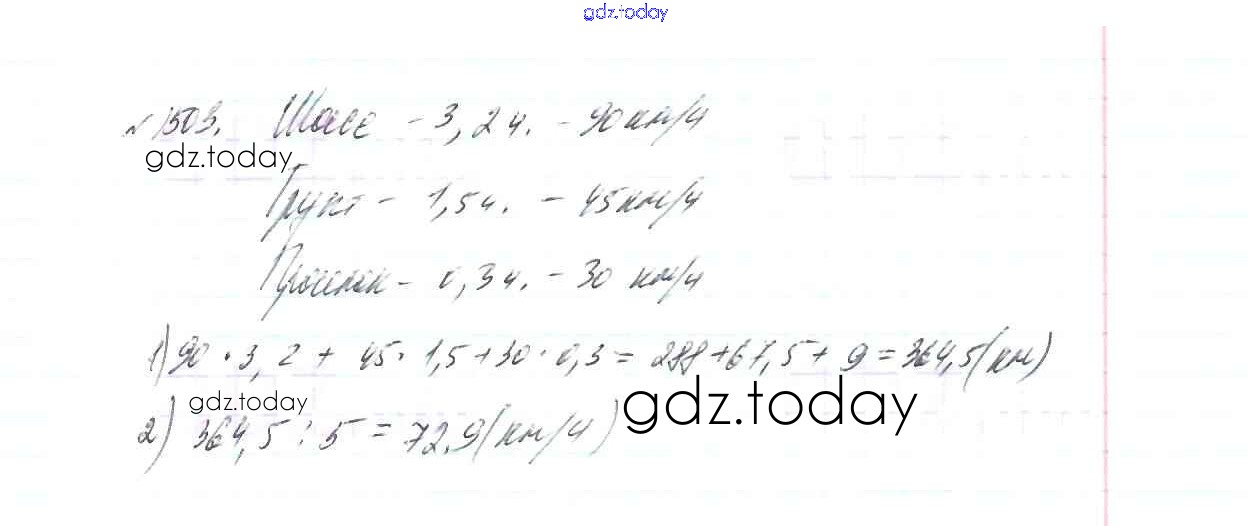 gdz.today
№1503. Шоссе - 3,2 ч. - 90 км/ч
gdz.today
Грунт - 1,5 ч. - 45 км/ч
Проселок - 0,3 ч. - 30 км/ч
1) 90 · 3,2 + 45 · 1,5 + 30 · 0,3 = 288 + 67,5 + 9 = 364,5 (км)
gdz.today
gdz.today
2) 364,5 : 5 = 72,9 (км/ч)